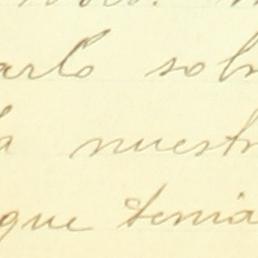 arlo sobr
a nuestr
que tenia